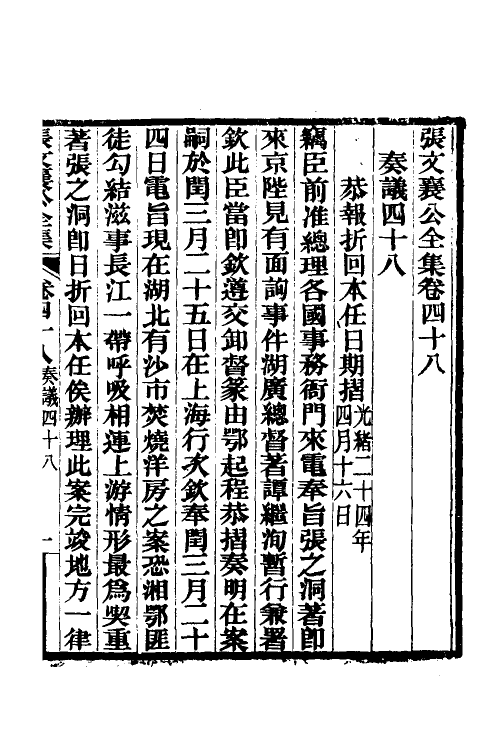 張文襄公全集卷四十八
奏議四十八
恭報折回本任日期摺光緒二十四年四月十六日
竊臣前准總理各國事務衙門來電奉旨張之洞著卽
來京陛見有面詢事件湖廣總督著譚繼洵暫行兼署
欽此臣當卽欽遵交卸督篆由鄂起程恭摺奏明在案
嗣於閏三月二十五日在上海行次欽奉閏三月二十
四日電旨現在湖北有沙市焚燒洋房之案恐湘鄂匪
徒勾結滋事長江一帶呼吸相連上游情形最爲喫重
著張之洞卽日折回本任俟辦理此案完竣地方一律
張文襄公全集 卷四十八 奏議四十八 一